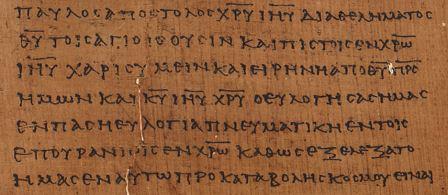 ΠΑΥΛΟΣ ΑΠΟΣΤΟΛΟΣ Χ̅Ρ̅Υ̅ Ι̅Η̅Υ̅ ΔΙΑ ΘΕΛΗΜΑΤΟΣ
Θ̅Υ̅ ΤΟΙΣ ΑΓΙΟΙΣ ΟΥΣΙΝ ΚΑΙ ΠΙΣΤΟΙΣ ΕΝ Χ̅Ρ̅Ω̅
Ι̅Η̅Υ̅ ΧΑΡΙΣ ΥΜΕΙΝ ΚΑΙ ΕΙΡΗΝΗ ΑΠΟ Θ̅Υ̅ Π̅Ρ̅Σ̅
ΗΜΩΝ ΚΑΙ Κ̅Υ̅ Ι̅Η̅Υ̅ Χ̅Ρ̅Υ̅ Ο ΕΥΛΟΓΗΣΑΣ ΗΜΑΣ
ΕΝ ΠΑΣΗ ΕΥΛΟΓΙΑ ΠΝΕΥΜΑΤΙΚΗ ΕΝ ΤΟΙΣ
ΕΠΟΥΡΑΝΙΟΙΣ ΕΝ Χ̅Ρ̅Ω̅ ΚΑΘΩΣ ΕΞΕΛΕΞΑΤΟ
ΗΜΑΣ ΕΝ ΑΥΤΩ ΠΡΟ ΚΑΤΑΒΟΛΗΣ ΚΟΣΜΟΥ ΕΙΝΑΙ